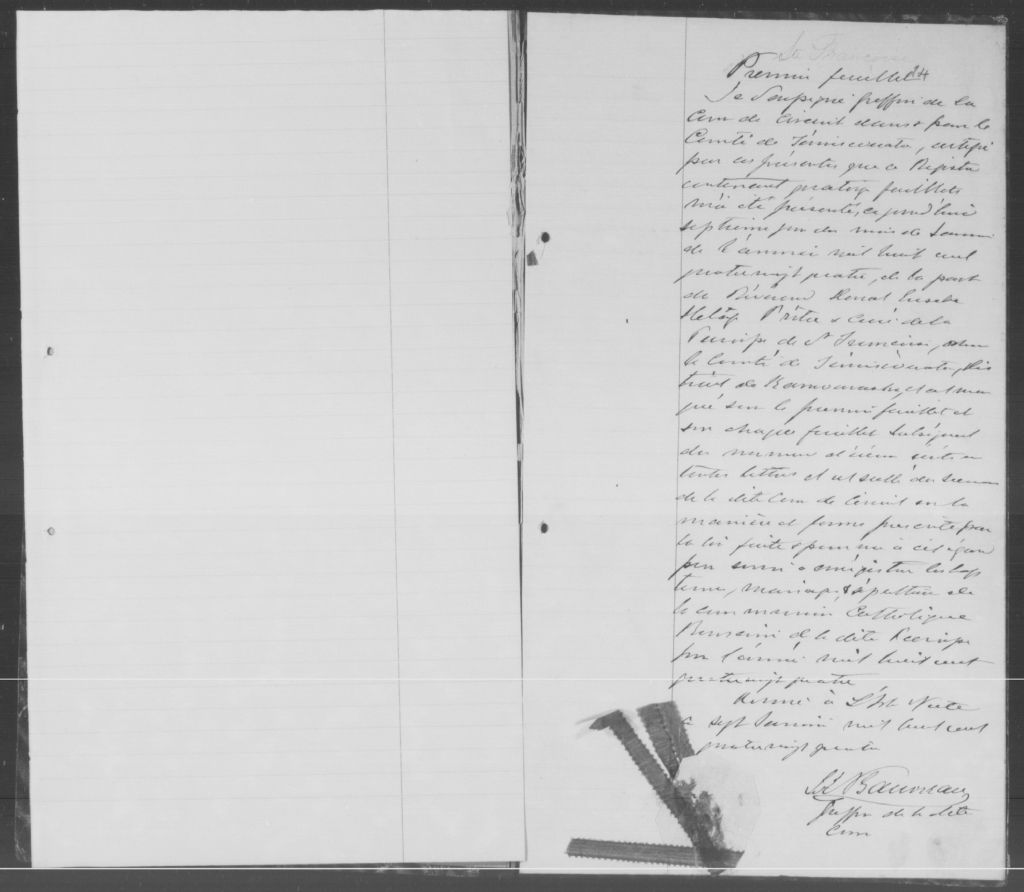 St François
Premier feuillet 14
Je Soussigné Greffier de la
Cour de Circuit dans & pour le
Comté de Témiscouata, certifie
par ces présentes que ce Régistre
contenant quatorze feuillets
m'a été présenté, ce jourd'hui
septième jour du mois de Janvier
de l'année mil huit cent
quatrevingt quatre, de la part
du Révérend
Prêtre & Curé de la
Paroisse de St François, dans
le Comté de Témiscouata, Dis
trict de Kamouraska, et est mar
qué sur le premier feuillet et
sur chaque feuillet subséquent
du numéro d'icelui écrit en
toutes lettres et est scellé du sceau
de la dite Cour de Circuit en la
manière et forme prescrite par
la loi faite & pourvue à cet égard
pour servir à enrégistrer les bap
têmes, mariages & sépultures de
la communion Catholique
Romaine de la dite Paroisse
pour l'année mil huit cent
quatrevingt quatre
Donné à L'Isle Verte
ce sept Janvier mil huit cent
quatrevingt quatre
Greffier de la dite
Cour